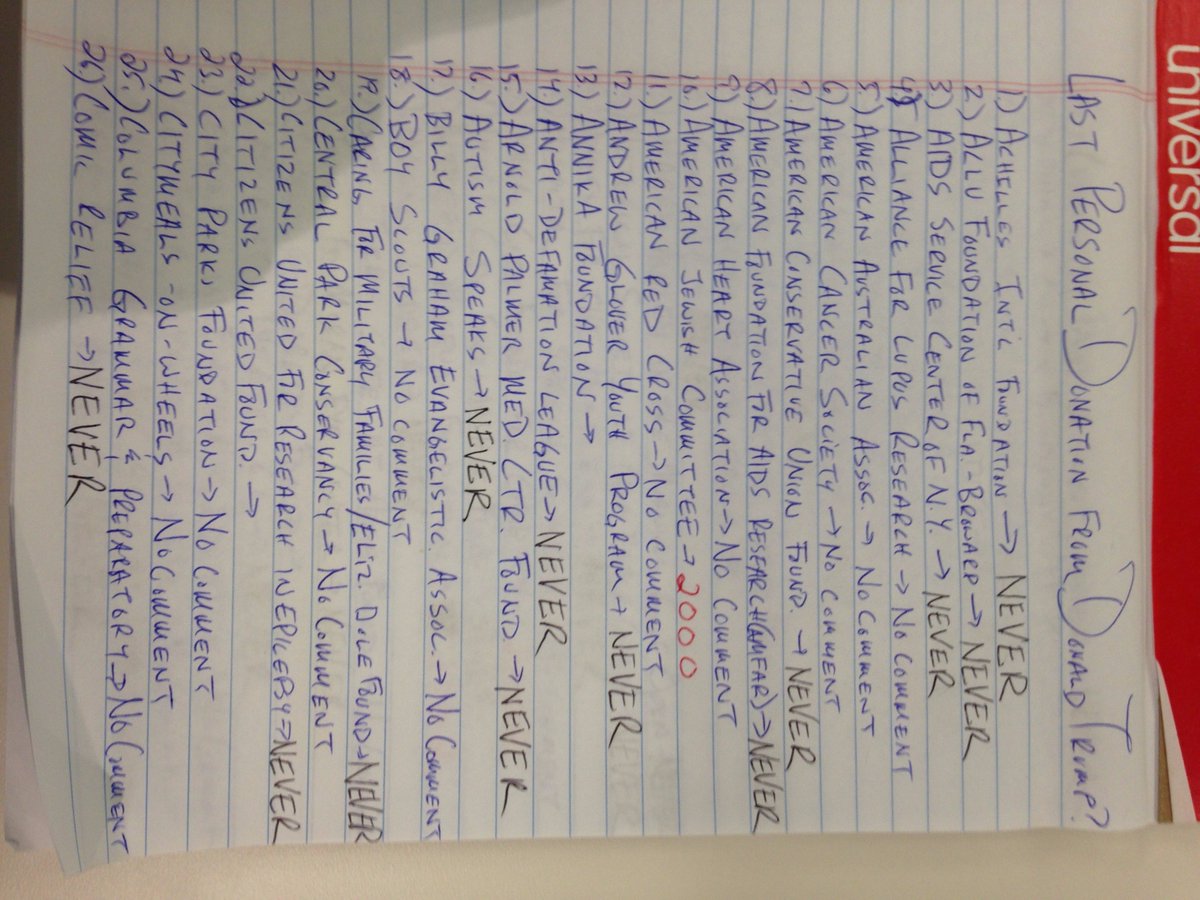 universal
LAST PERSONAL DONATION FROM DONALD TRUMP?
1) ACHILLES INT'L FOUNDATION → NEVER
2) ALLU FOUNDATION OF FLA.-BROWARD → NEVER
3) AIDS SERVICE CENTER OF N.Y. → NEVER
4) ALLIANCE FOR LUPUS RESEARCH → NO COMMENT
5) AMERICAN AUSTRALIAN ASSOC. → NO COMMENT
6) AMERICAN CANCER SOCIETY → NO COMMENT
7.) AMERICAN CONSERVATIVE UNION FOUND. → NEVER
8.) AMERICAN FOUNDATION FOR AIDS RESEARCH (AMFAR) → NEVER
9) AMERICAN HEART ASSOCIATION → NO COMMENT
10.) AMERICAN JEWISH COMMITTEE → 2000
11.) AMERICAN RED CROSS → NO COMMENT
12.) ANDREW GLOVER YOUTH PROGRAM → NEVER
13) ANNIKA FOUNDATION →
14.) ANTI-DEFAMATION LEAGUE → NEVER
15.) ARNOLD PALMER MED. CTR. FOUND → NEVER
16.) AUTISM SPEAKS → NEVER
17.) BILLY GRAHAM EVANGELISTIC ASSOC. → NO COMMENT
18.) BOY SCOUTS → NO COMMENT
19.) CARING FOR MILITARY FAMILIES/ELIZ. DOLE FOUND → NEVER
20.) CENTRAL PARK CONSERVANCY → NO COMMENT
21.) CITIZENS UNITED FOR RESEARCH IN EPILEPSY → NEVER
22.) CITIZENS UNITED FOUND. →
23.) CITY PARKS FOUNDATION → NO COMMENT
24) CITYMEALS-ON-WHEELS → NO COMMENT
25.) COLUMBIA GRAMMAR & PREPARATORY → NO COMMENT
26) COMIC RELIEF → NEVER